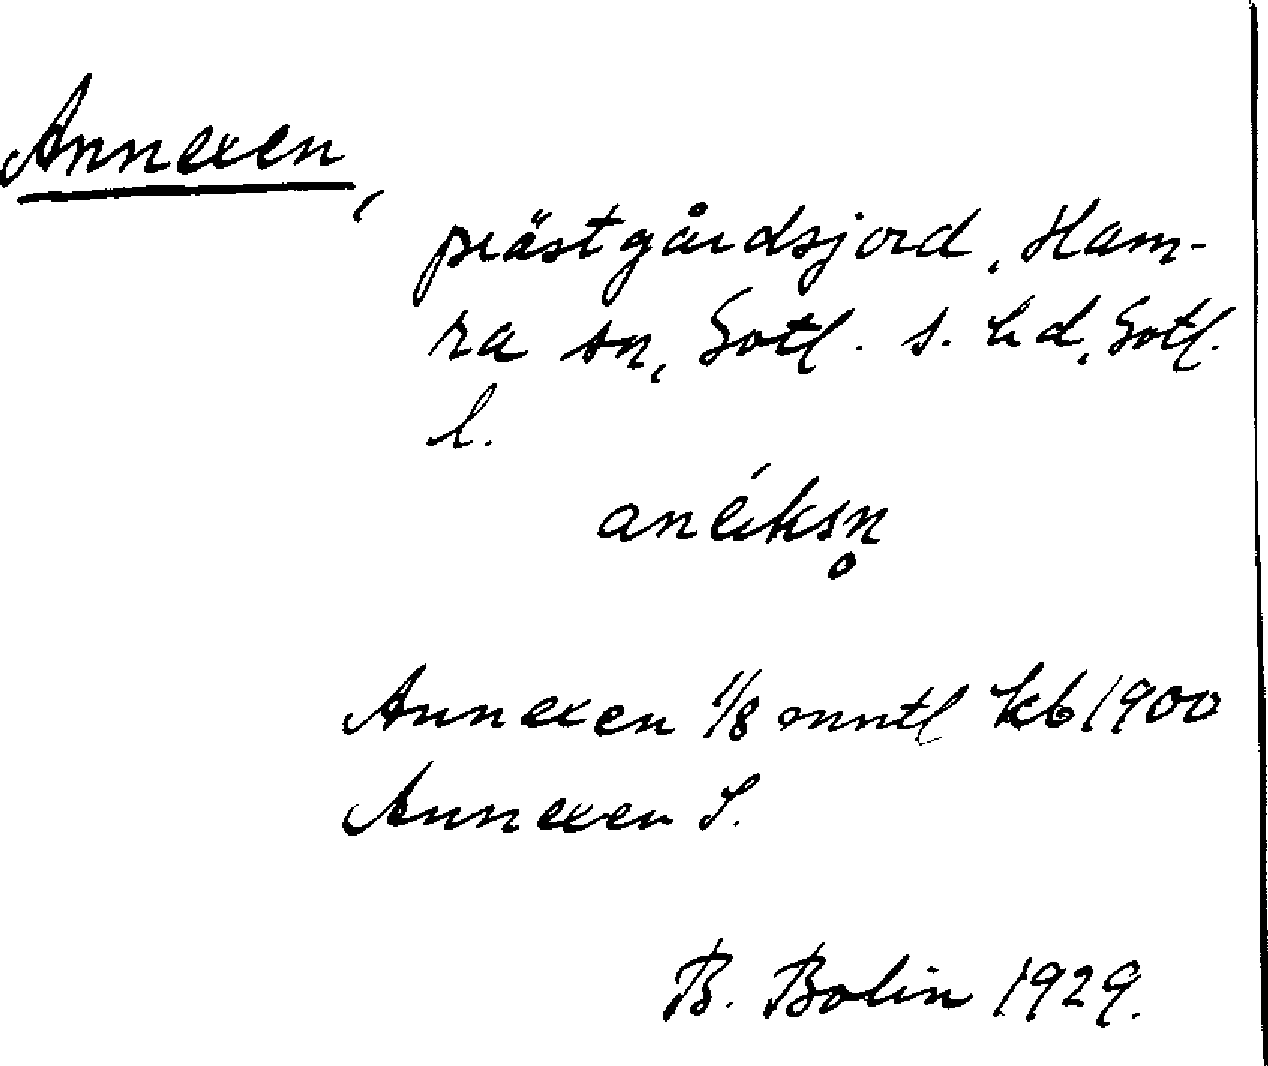 Annexen,
prästgårdsjord, Ham-
ra sn, Gotl. s. hd, Gotl.
l.
anéksn̥
Annexen 1/8 mntl kb 1900
Annexen S.
B. Bolin 1929.